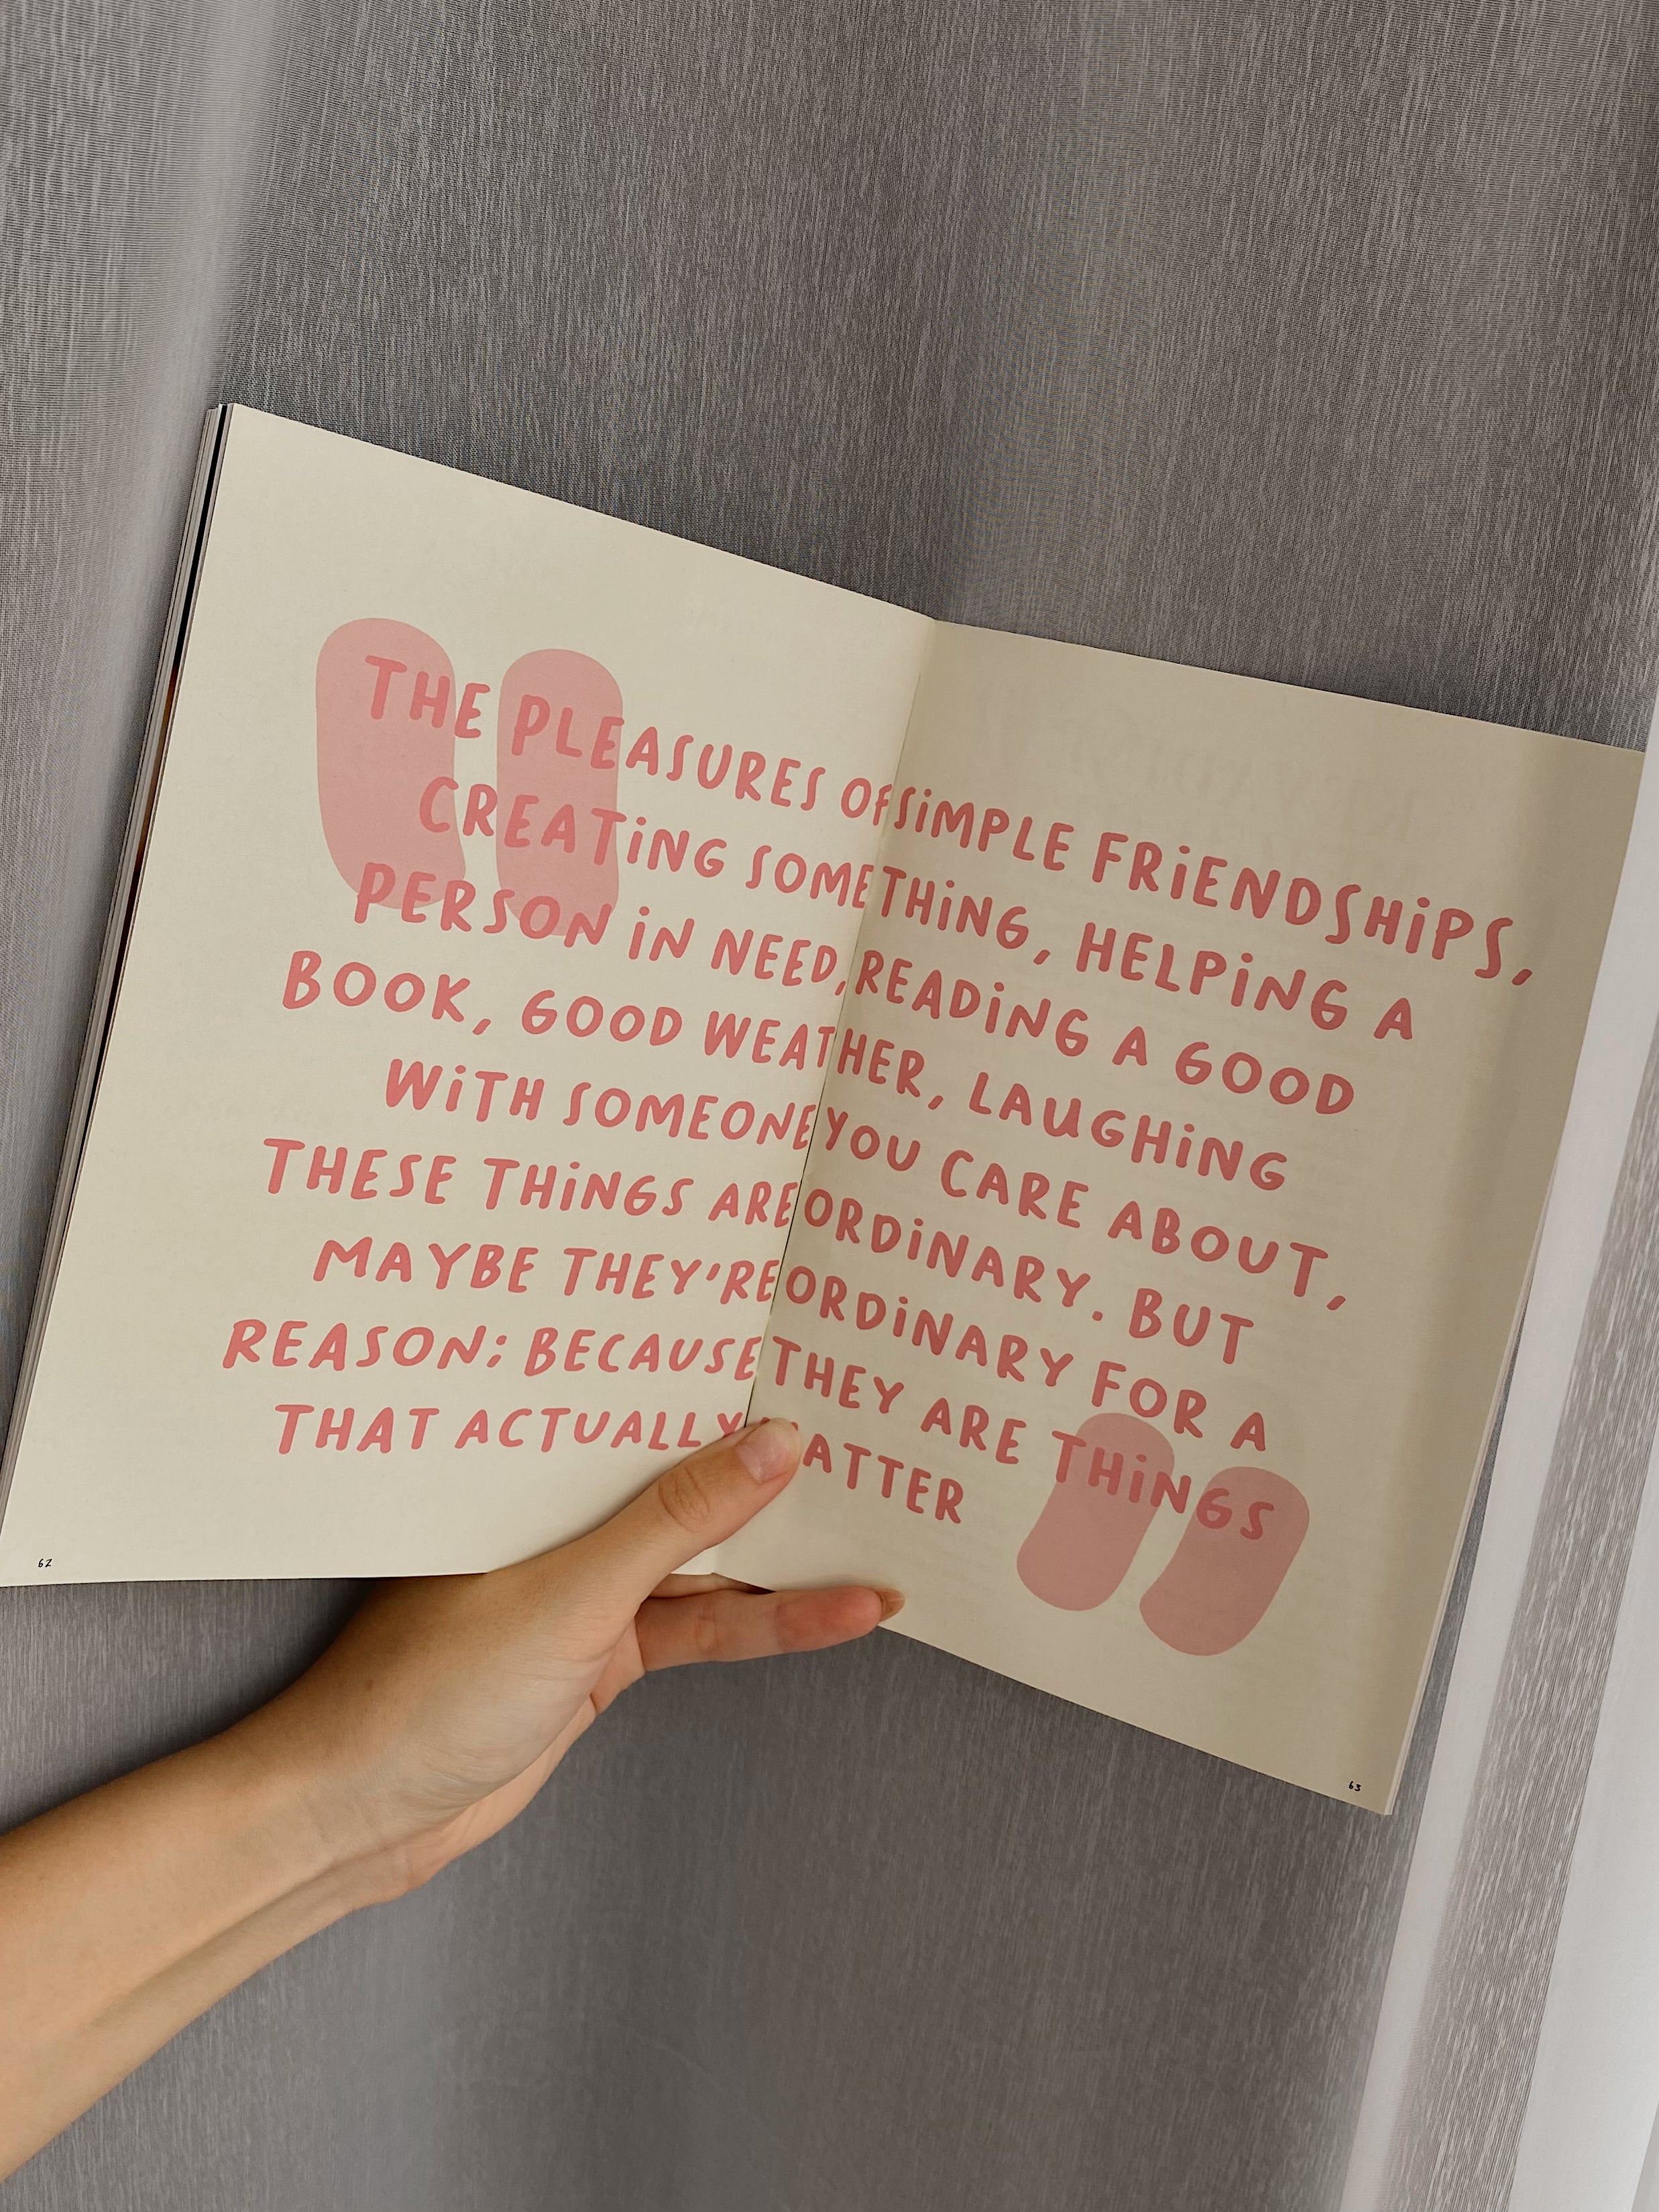 THE PLEASURES OF SiMPLE FRiENDSHiPS,
CREATiNG SOMETHiNG, HELPiNG A
PERSON iN NEED, READiNG A GOOD
BOOK, GOOD WEATHER, LAUGHiNG
WiTH SOMEONE YOU CARE ABOUT,
THESE THiNGS ARE ORDiNARY. BUT
MAYBE THEY'RE ORDiNARY FOR A
REASON; BECAUSE THEY ARE THiNGS
THAT ACTUALLY MATTER
62
63